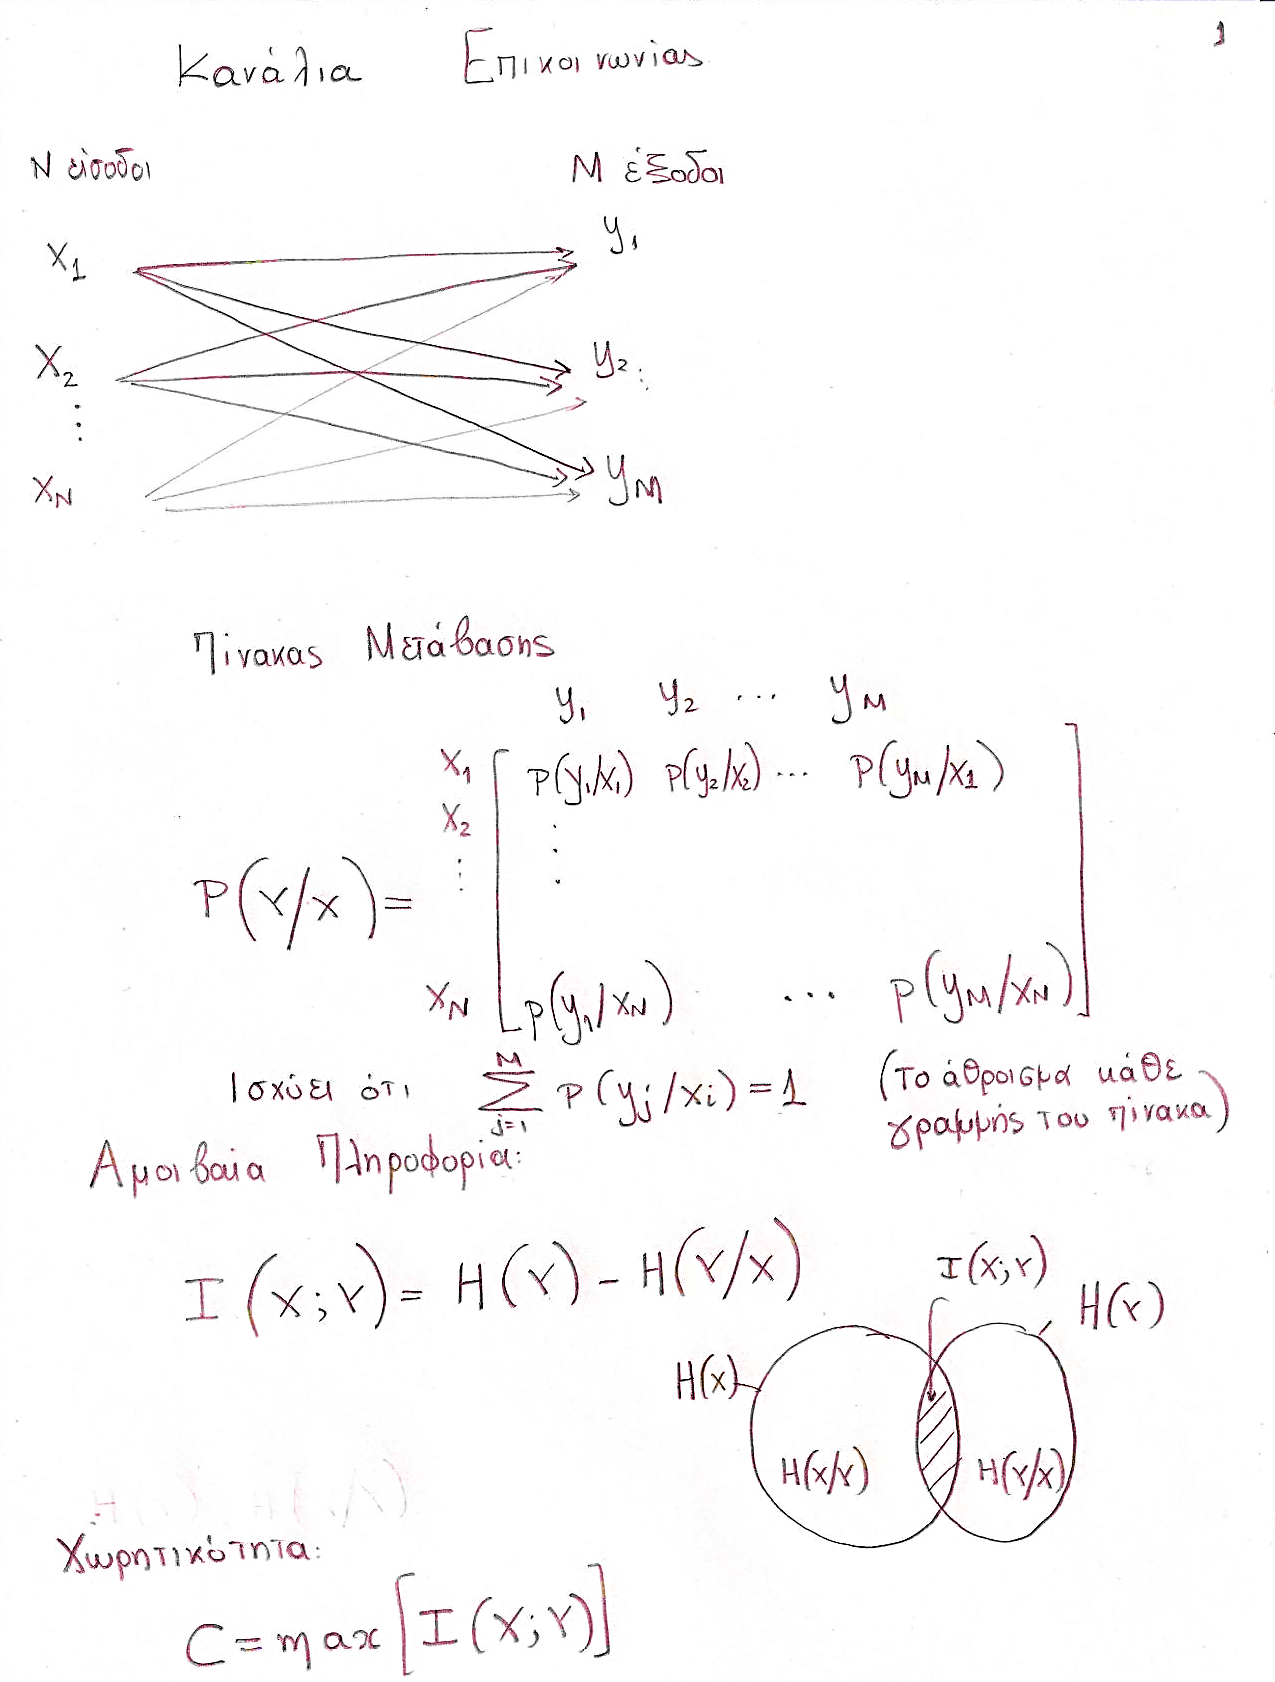 1
Κανάλια Επικοινωνίας
N είσοδοι M έξοδοι
x1 y1
x2 y2
⋮ ⋱
xN yM
Πίνακας Μετάβασης
y1 y2 ... yM
x1 P(y1/x1) P(y2/x2) ... P(yM/x1)
x2 ⋮
⋮
P(Y/X)=
xN P(y1/xN) ... P(yM/xN)
Ισχύει ότι ∑_{j=1}^{M} P(yj/xi)=1 (Το άθροισμα κάθε
γραμμής του πίνακα)
Αμοιβαία Πληροφορία:
I(X;Y)= H(Y) - H(Y/X)
I(X;Y)
H(Y)
H(X)
H(X/Y) H(Y/X)
Χωρητικότητα:
C = max [I(X;Y)]